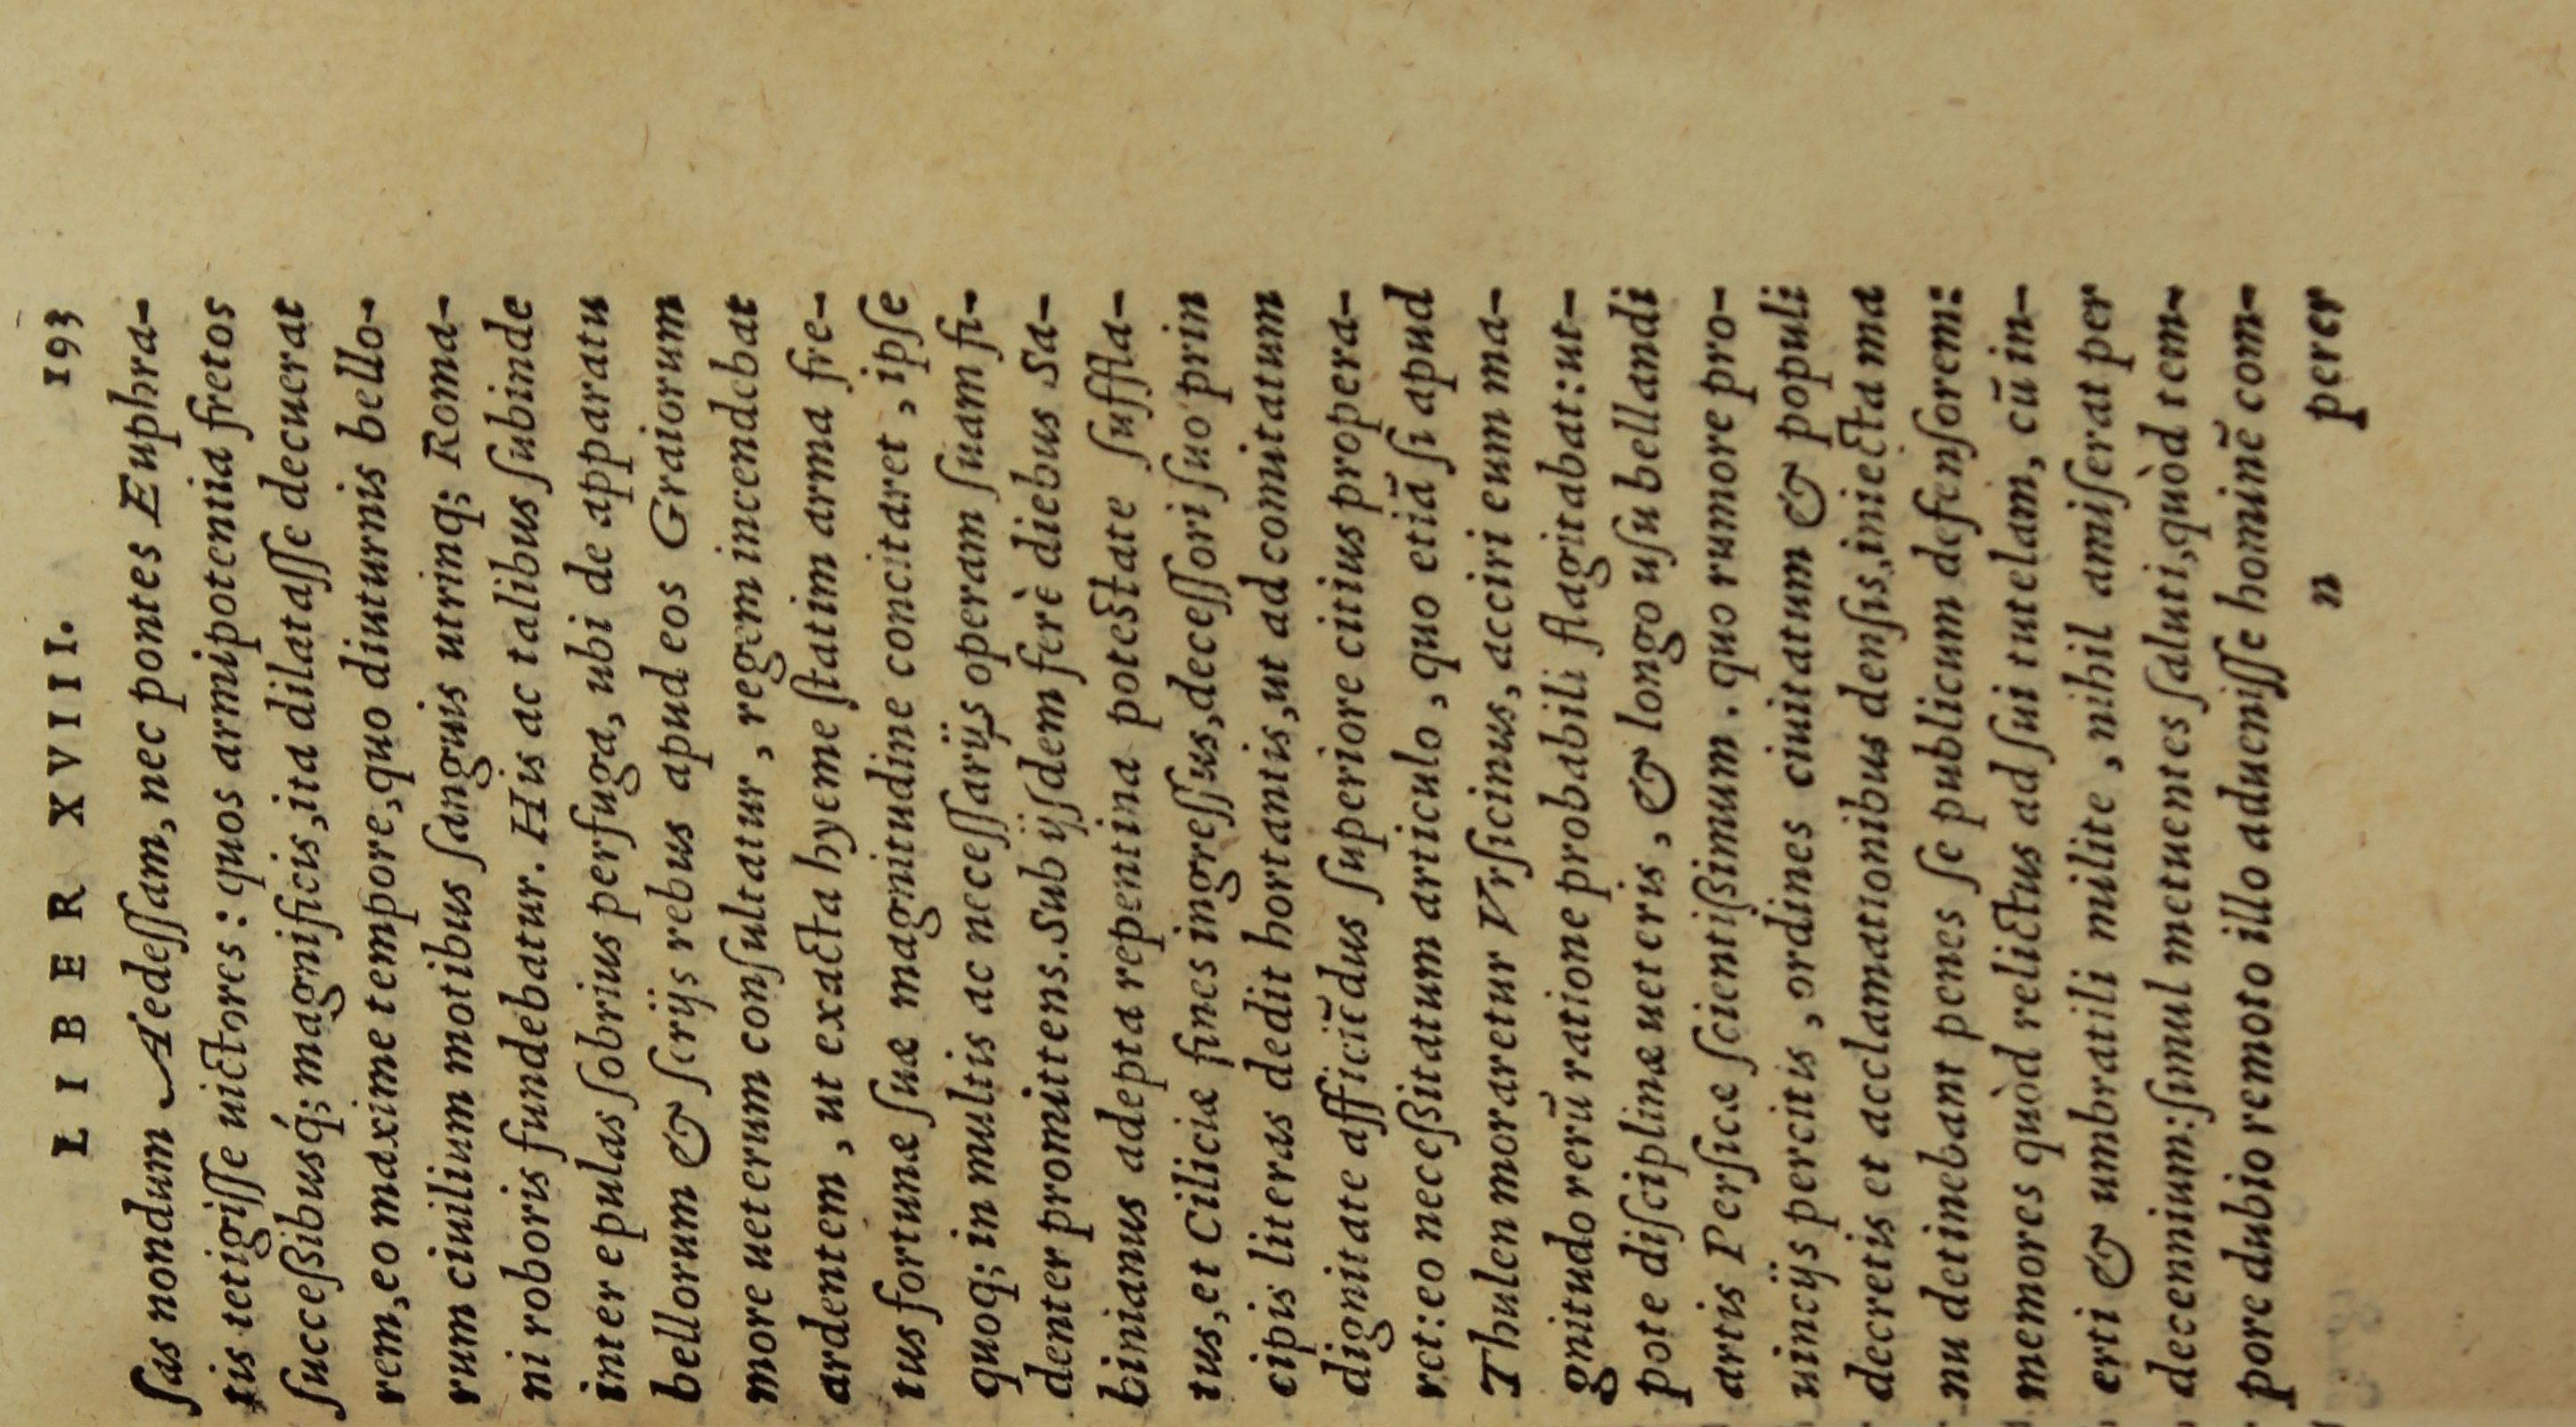 LIBER XVIII. 193
ſas nondum Aedeſſam, nec pontes Euphra-
tis tetigiſſe uictores: quos armipotentia fretos
ſucceßibusq́; magnificis,ita dilataſſe decuerat
rem,eo maxime tempore,quo diuturnis bello-
rum ciuilium motibus ſanguis utrinq; Roma-
ni roboris fundebatur. His ac talibus ſubinde
inter epulas ſobrius perfuga, ubi de apparatu
bellorum & ſerijs rebus apud eos Graiorum
more ueterum conſultatur, regem incendebat
ardentem, ut exacta hyeme ſtatim arma fre-
tus fortunæ ſuæ magnitudine concitaret, ipſe
quoq; in multis ac neceſſarijs operam ſuam fi-
denter promittens. Sub ijſdem ferè diebus Sa-
binianus adepta repentina poteſtate ſuffla-
tus,et Ciliciæ fines ingreſſus,deceſſori ſuo prin
cipis literas dedit hortantis,ut ad comitatum
dignitate afficiẽdus ſuperiore citius propera-
ret: eo neceßitatum articulo, quo etiã ſi apud
Thulen moraretur Vrſicinus, acciri eum ma-
gnitudo rerũ ratione probabili flagitabat:ut-
pote diſciplinæ ueteris, & longo uſu bellandi
artis Perſicæ ſcientißimum. quo rumore pro-
uincijs percitis, ordines ciuitatum & populi
decretis et acclamationibus denſis,iniecta ma
nu detinebant penes ſe publicum defenſorem:
memores quòd relictus ad ſui tutelam, cũ in-
erti & umbratili milite, nihil amiſerat per
decennium:ſimul metuentes ſaluti,quòd tem-
pore dubio remoto illo adueniſſe hominẽ com-
n perer